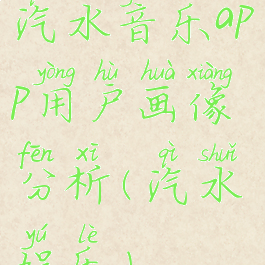 汽水音乐ap
p用户画像
yòng hù huà xiàng
分析(汽水
fēn xī qì shuǐ
娱乐)
yú lè